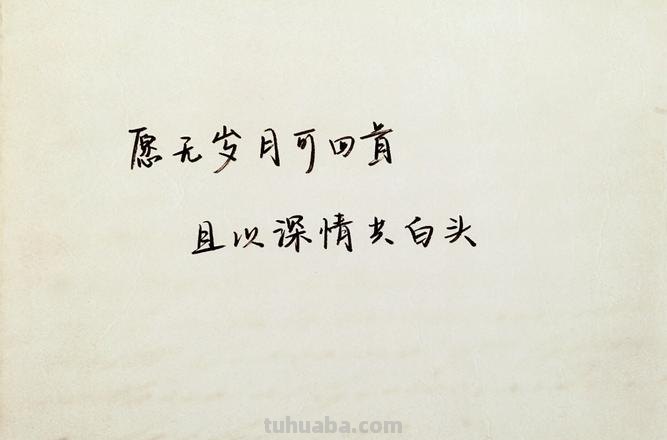 愿无岁月可回首
且以深情共白头
tuhuaba.com